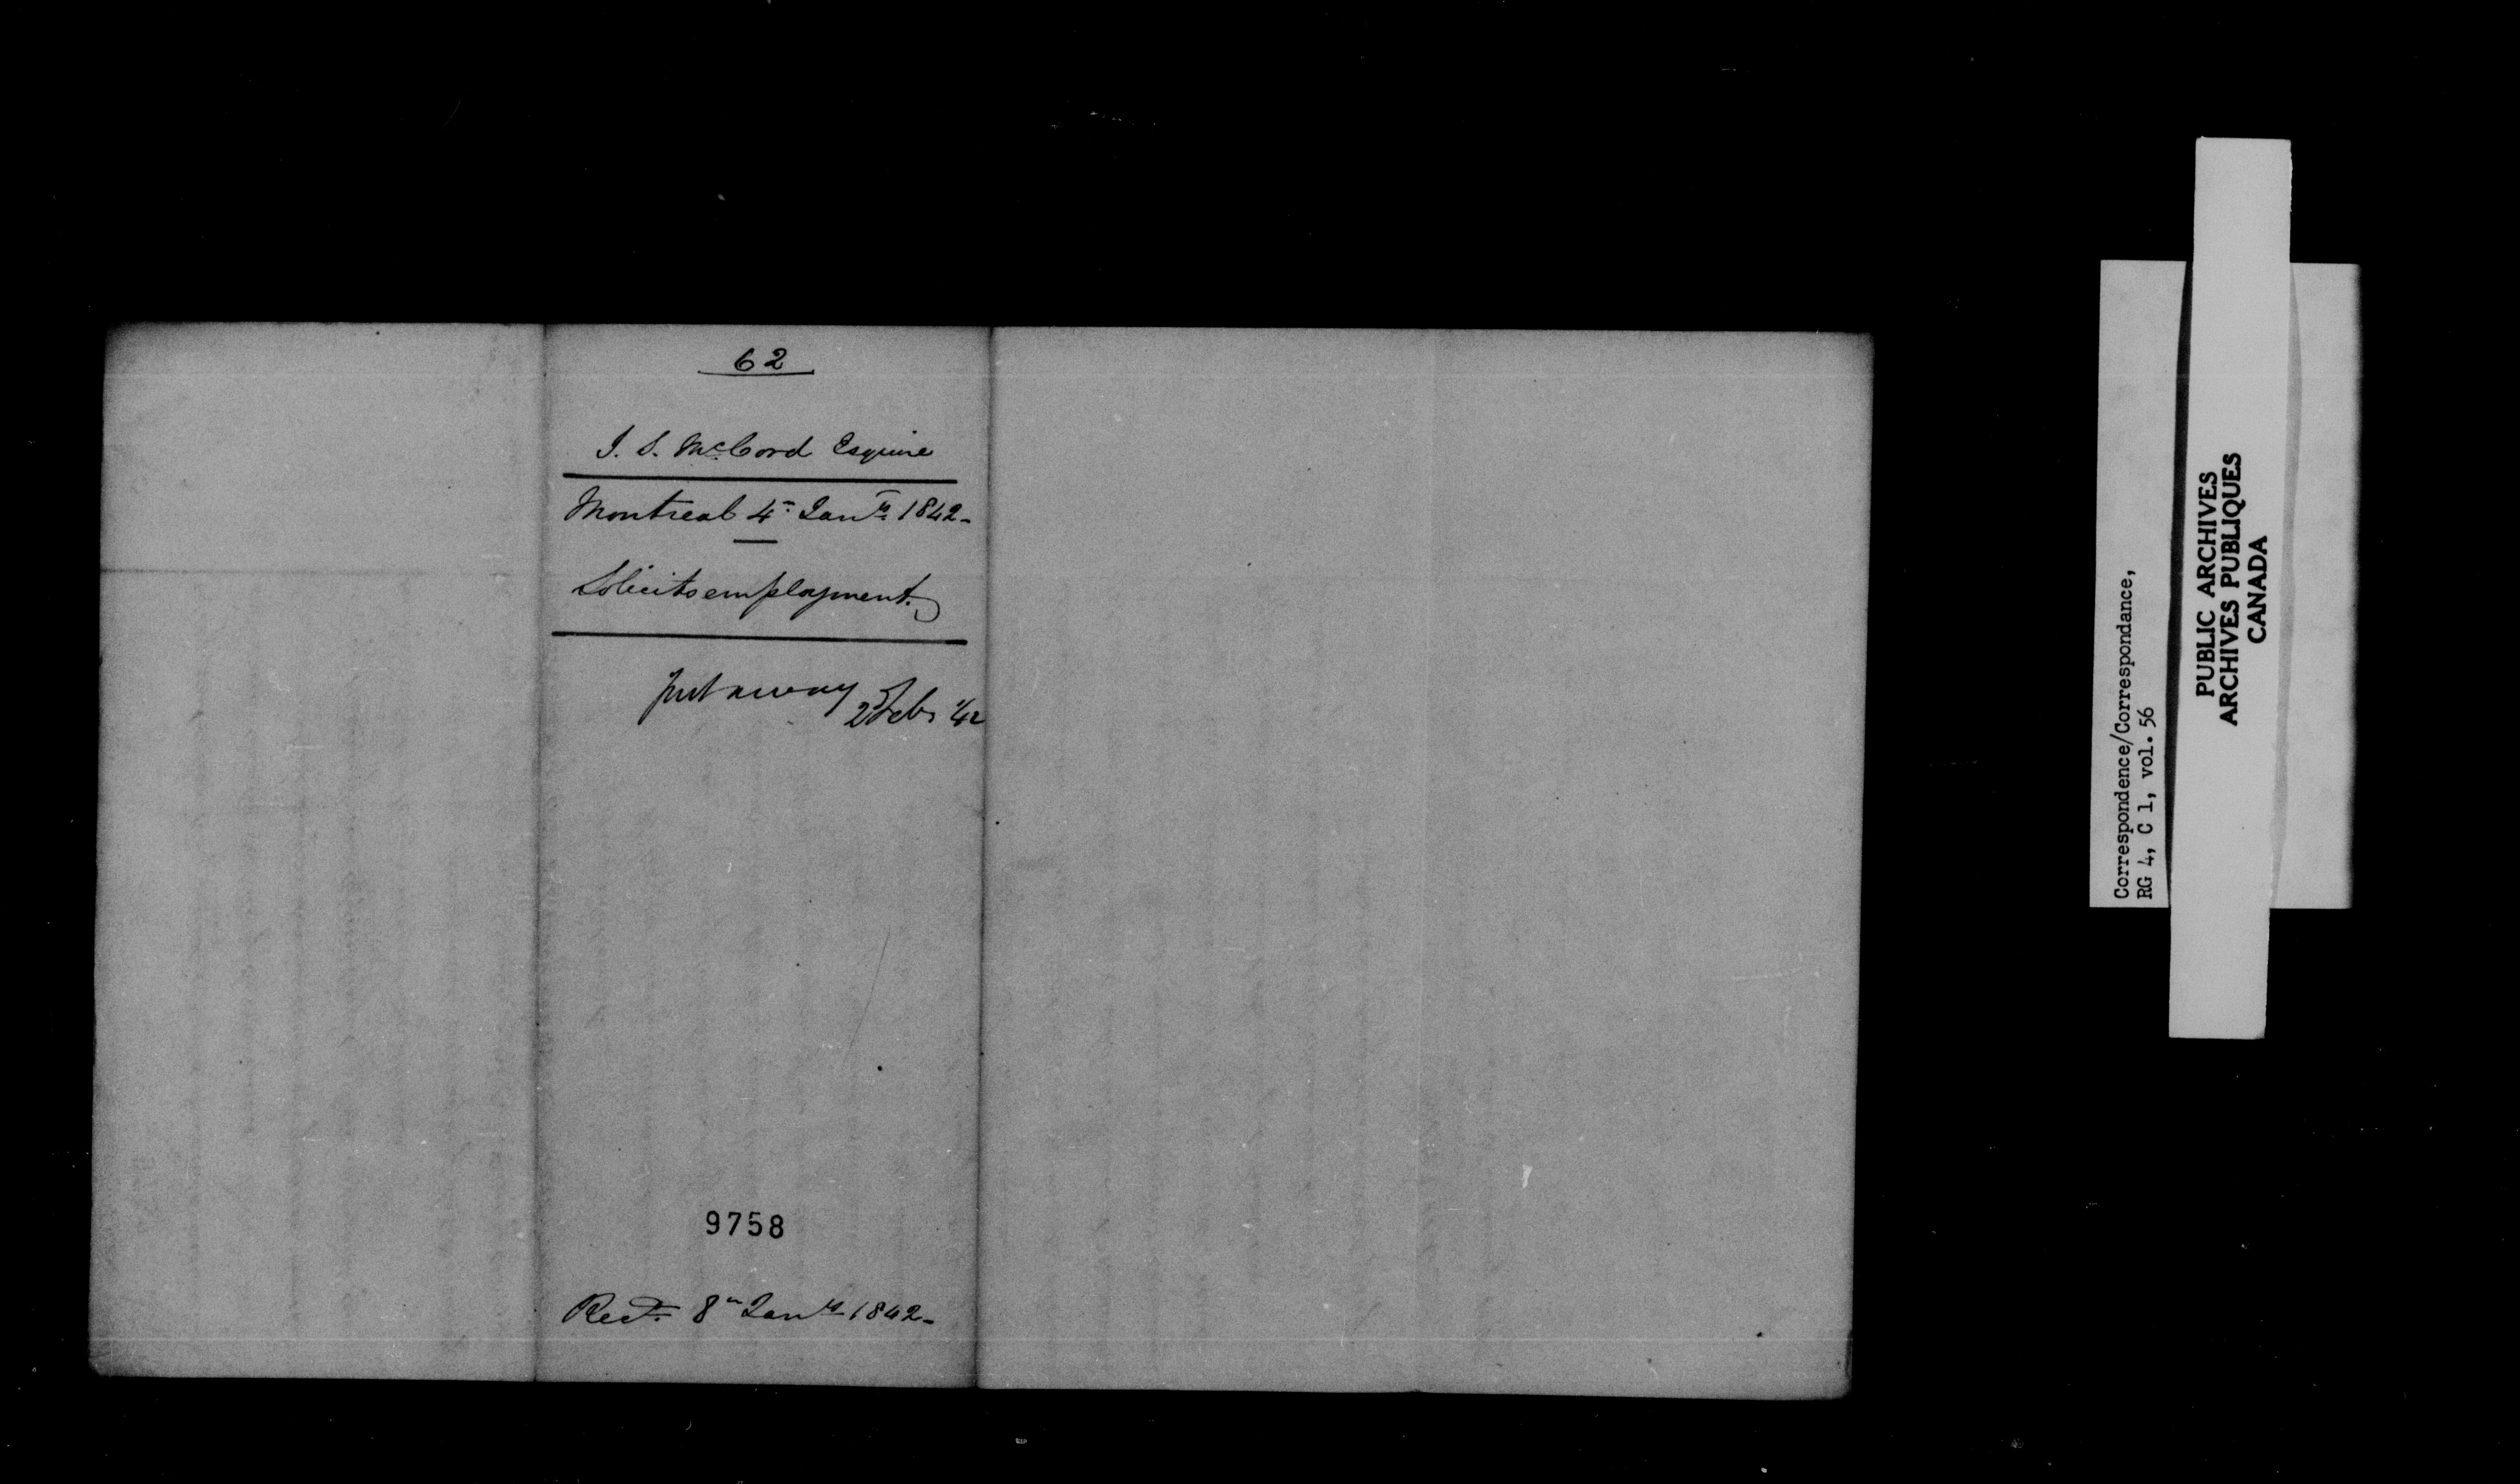 62
J. S. McCord Esquire
Montreal 4th Jany 1842-
Solicits employment.
put away
2 Feby 42
9758
Recd. 8th Jany 1842-
Correspondence/Correspondance,
RG 4, C 1, vol. 56
PUBLIC ARCHIVES
ARCHIVES PUBLIQUES
CANADA